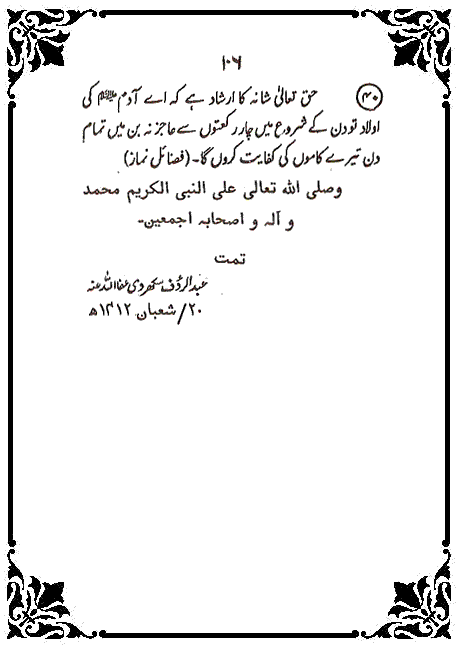 ۱۰۶
(۴۰) حق تعالیٰ شانہ کا ارشاد ہے کہ اے آدم ﷺ کی
اولاد تو دن کے شروع میں چار رکعتوں سے عاجز نہ بن میں تمام
دن تیرے کاموں کی کفایت کروں گا۔ (فضائل نماز)
وصلی اللہ تعالی علی النبی الکریم محمد
و آلہ و اصحابہ اجمعین۔
تمت
عبدالرؤف سکھروی عفا اللہ عنہ
۲۰/شعبان ۱۴۱۲ھ